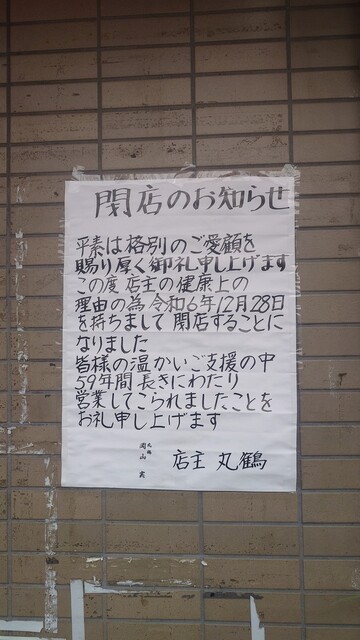 閉店のお知らせ
平素は格別のご愛顧を
賜り厚く御礼申し上げます
この度店主の健康上の
理由の為令和6年12月28日
を持ちまして閉店することに
なりました
皆様の温かいご支援の中
59年間長きにわたり
営業してこられましたことを
お礼申し上げます
店主 丸鶴